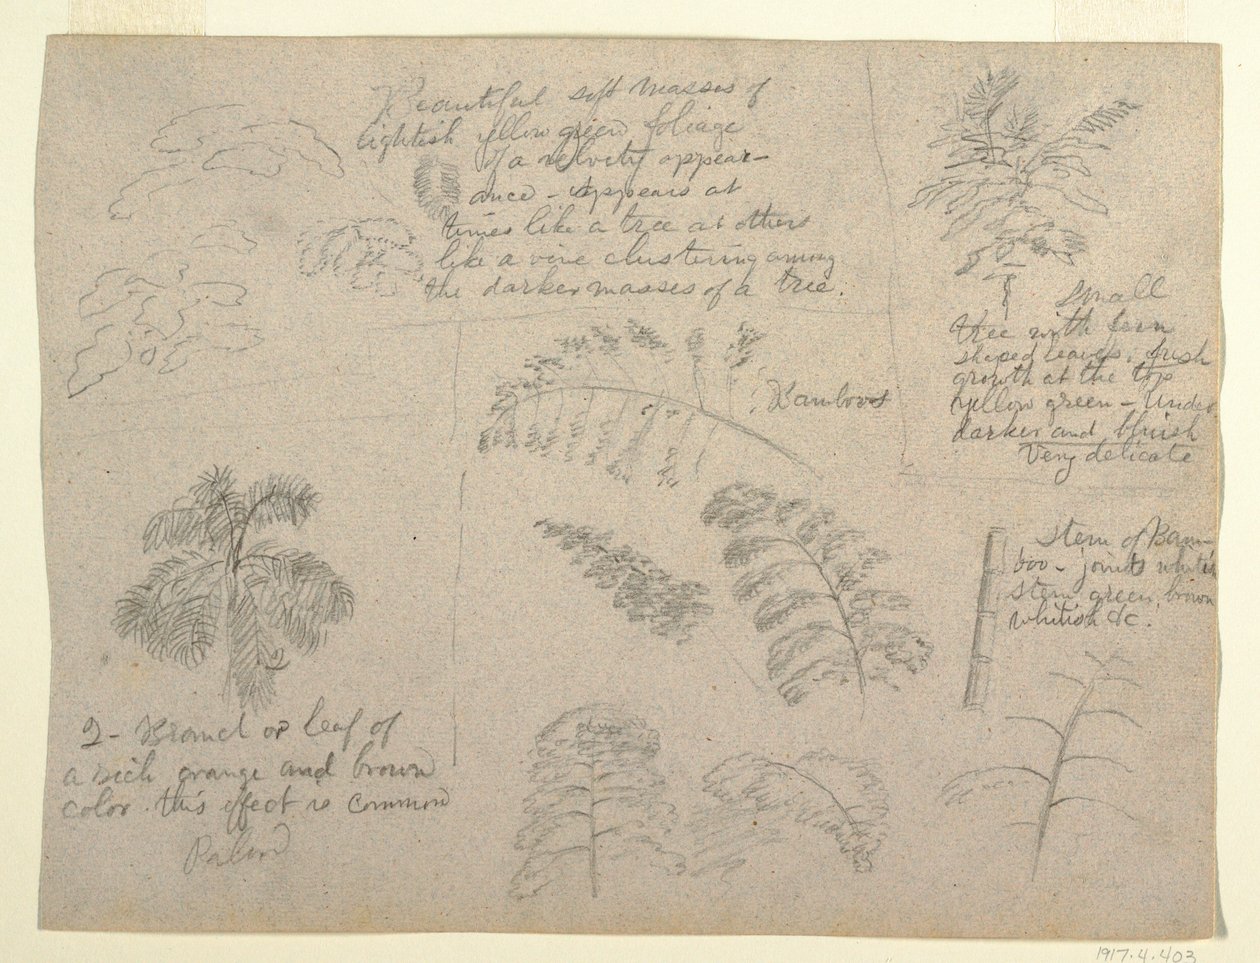 Beautiful soft masses of
lightish yellow green foliage
of a velvety appear-
ance - Appears at
times like a tree at others
like a vine clustering among
the darker masses of a tree.
Small
tree with fern
shaped leaves. fresh
growth at the top
yellow green - Under
darker and bluish
Very delicate
Bamboos
Stem of Bam-
boo - joints whitish
stem green, brown
whitish &c.
2 - Branch or leaf of
a rich orange and brown
color. this effect is common
Palm
1917.4.403